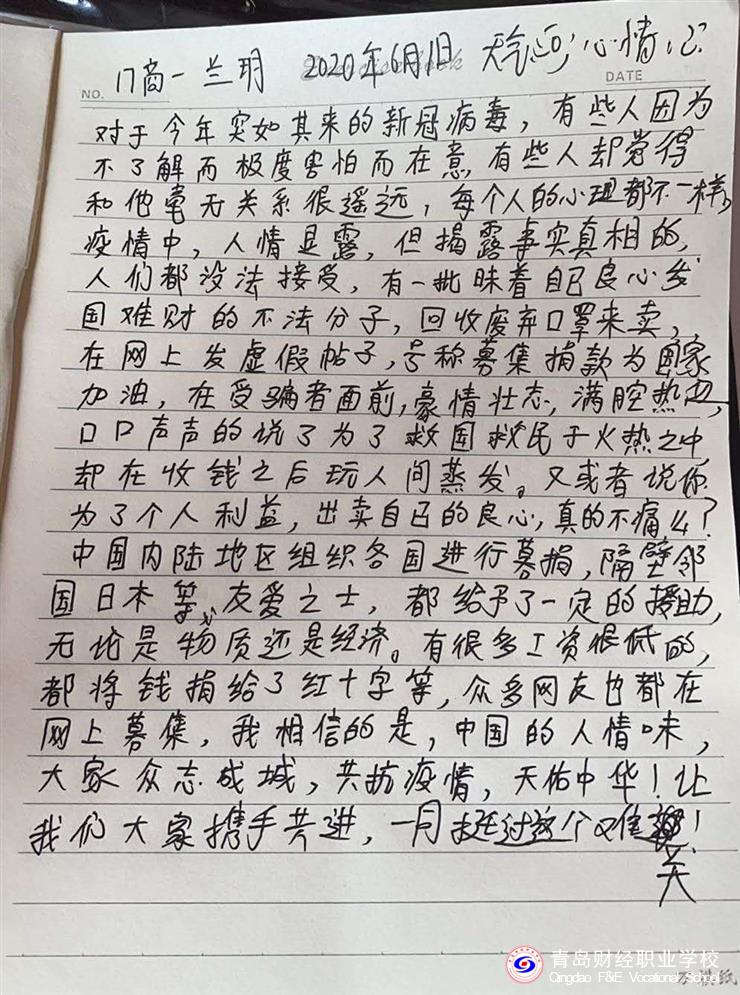 17商一 兰玥 2020年6月1日 天气 心情
NO.
DATE
对于今年突如其来的新冠病毒，有些人因为
不了解而极度害怕而在意，有些人却觉得
和他毫无关系很遥远，每个人的心理都不一样，
疫情中，人情显露，但揭露事实真相的，
人们都没法接受，有一批昧着自己良心发
国难财的不法分子，回收废弃口罩来卖，
在网上发虚假帖子，号称募集捐款为国家
加油，在受骗者面前，豪情壮志，满腔热血，
口口声声的说了为了救国救民于火热之中，
却在收钱之后玩人间蒸发。又或者说你
为了个人利益，出卖自己的良心，真的不痛么？
中国内陆地区组织各国进行募捐，隔壁邻
国日本等友爱之士，都给予了一定的援助，
无论是物质还是经济。有很多工资很低的，
都将钱捐给了红十字等，众多网友也都在
网上募集，我相信的是，中国的人情味，
大家众志成城，共抗疫情，天佑中华！让
我们大家携手共进，一同挺过这个难！
关
青岛财经职业学校
Qingdao F&E Vocational School